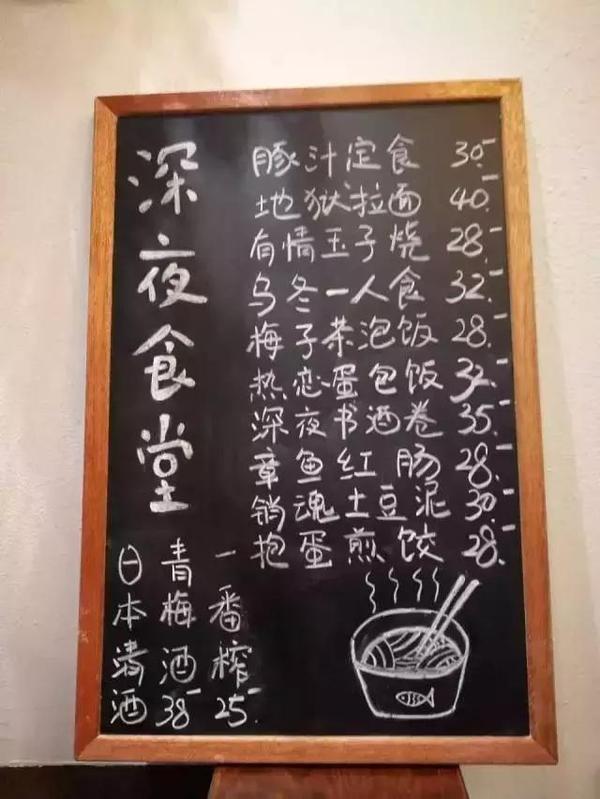 深夜食堂
豚汁定食 30.-
地狱拉面 40.-
有情玉子烧 28.-
乌冬一人食 32.-
梅子茶泡饭 28.-
热恋蛋包饭 32.-
深夜书酒卷 35.-
章鱼红肠 28.-
销魂土豆泥 30.-
抱蛋煎饺 28.-
日本清酒
青梅酒 38.-
一番榨 25.-